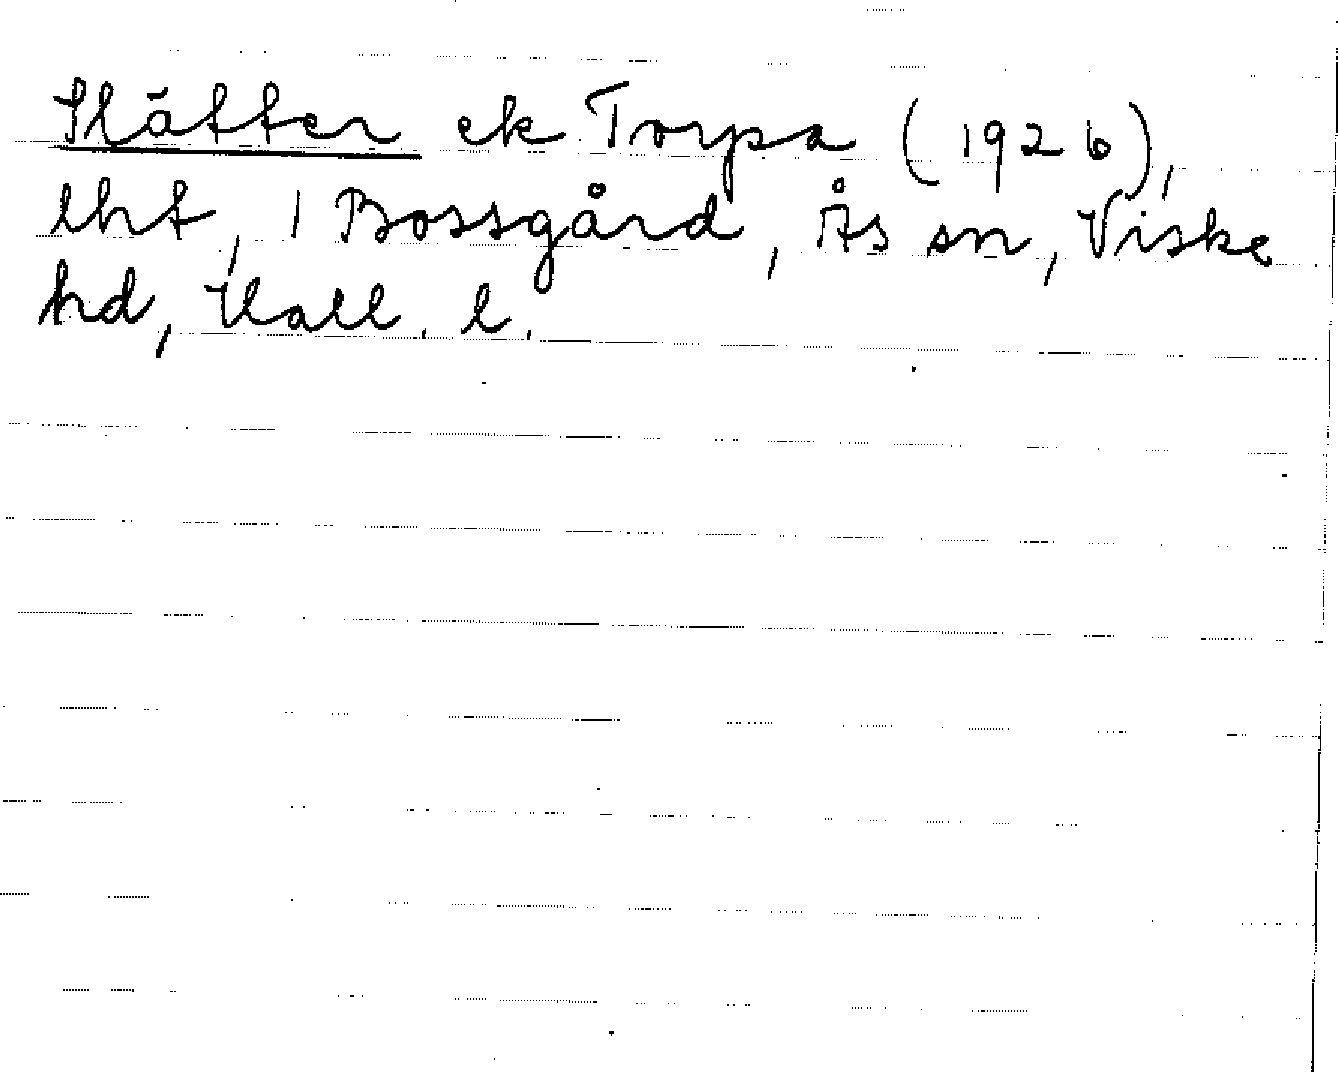 Slätten ek Torpa (1926),
lht, 1 Bossgård, Ås sn, Viske
hd, Hall. l.